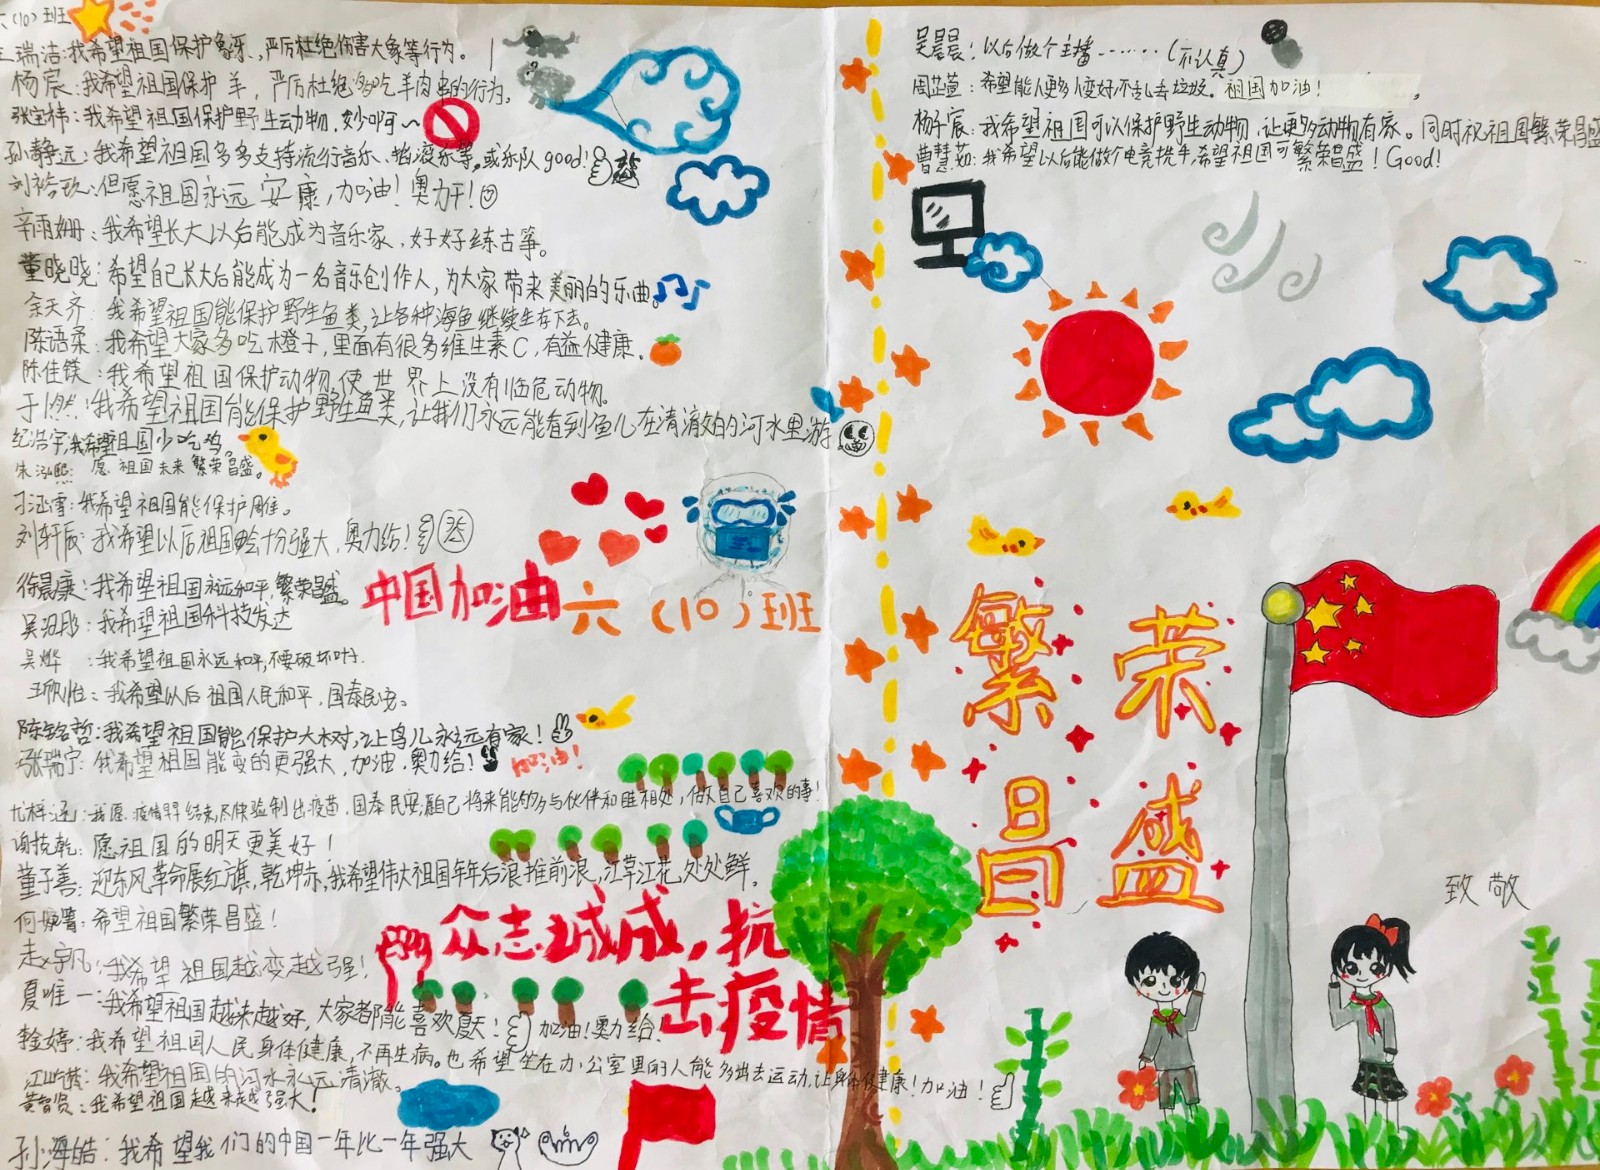 六(10)班
王瑞洁:我希望祖国保护象牙、严厉杜绝伤害大象等行为。
杨宸:我希望祖国保护羊,严厉杜绝多吃羊肉串的行为。
张宝祎:我希望祖国保护野生动物,妙啊~
孙静远:我希望祖国多多支持流行音乐、摇滚乐等,或乐队good!
刘裕欣:但愿祖国永远安康,加油!奥力干!
辛雨姗:我希望长大以后能成为音乐家,好好练古筝。
董晓晓:希望自己长大后能成为一名音乐创作人,为大家带来美丽的乐曲。
余天齐:我希望祖国能保护野生鱼类,让各种海鱼继续生存下去。
陈语柔:我希望大家多吃橙子,里面有很多维生素C,有益健康。
陈佳镁:我希望祖国保护动物,使世界上没有临危动物。
于燃:我希望祖国能保护野生鱼类,让我们永远能看到鱼儿在清澈的河水里游
纪浩宇,我希望祖国少吃鸡。
朱泓熙:愿祖国未来繁荣昌盛。
涵雪:我希望祖国能保护
刘轩辰:我希望以后祖国会十分强大,奥力给!
徐晨康:我希望祖国永远和平,繁荣昌盛。
中国加油六(10)班
吴羽彤:我希望祖国科技发达
吴烨:我希望祖国永远和平,不要破坏
王欣怡:我希望以后祖国人民和平,国泰民安。
陈铭哲:我希望祖国能保护大树,让鸟儿永远有家!
张瑞宁:我希望祖国能变的更强大,加油,奥力给!
加油!
尤梓涵:我愿疫情早结束,尽快验制出疫苗,国泰民安,愿自己将来能够多与伙伴和睦相处,做自己喜欢的事!
乾:愿祖国的明天更美好!
董子善:迎东风革命展红旗,乾坤赤,我希望伟大祖国年年后浪推前浪,江草江花处处鲜。
何:希望祖国繁荣昌盛!
众志成城,抗
击疫情
赵宇凡:我希望祖国越变越强!
夏唯一:我希望祖国越来越好,大家都能喜欢夏天!加油!奥力给!
婷:我希望祖国人民身体健康,不再生病。也希望坐在办公室里的人能多出去运动,让身体健康!加油!
江:我希望祖国的河水永远清澈。
黄智贤:我希望祖国越来越强大!
孙海皓:我希望我们的中国一年比一年强大
吴晨晨:以后做个主播……(不认真)
周芷萱:希望能使更多人变好不乱丢垃圾。祖国加油!
杨千宸:我希望祖国可以保护野生动物,让更多动物有家。同时祝祖国繁荣昌盛
曹慧茹:我希望以后能做个电竞选手,希望祖国可繁荣昌盛!Good!
繁荣
昌盛
致敬